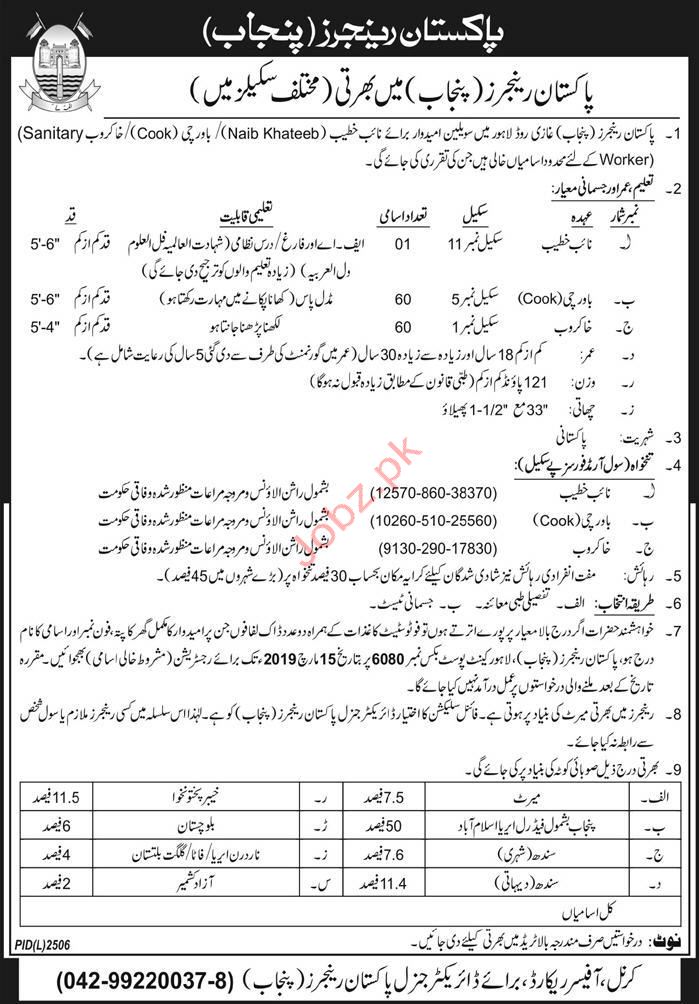 پاکستان رینجرز (پنجاب)
پاکستان رینجرز (پنجاب) میں بھرتی (مختلف سکیلز میں)
1۔ پاکستان رینجرز (پنجاب) غازی روڈ لاہور میں سویلین امیدوار برائے نائب خطیب (Naib Khateeb)/ باورچی (Cook)/ خاکروب (Sanitary
Worker) کے لئے محدود اسامیاں خالی ہیں جن کی تقرری کی جائے گی۔
2۔ تعلیم، عمر اور جسمانی معیار:
نمبر شمار عہدہ سکیل تعداد اسامی تعلیمی قابلیت قد
ا۔ نائب خطیب سکیل نمبر 11 01 ایف۔اے اور فارغ/ درس نظامی (شہادت العالمیہ فل العلوم قد کم از کم "6-'5
ول العربیہ) (زیادہ تعلیم والوں کو ترجیح دی جائے گی)
ب۔ باورچی (Cook) سکیل نمبر 5 60 مڈل پاس (کھانا پکانے میں مہارت رکھتا ہو) قد کم از کم "6-'5
ج۔ خاکروب سکیل نمبر 1 60 لکھنا پڑھنا جانتا ہو قد کم از کم "4-'5
د۔ عمر: کم از کم 18 سال اور زیادہ سے زیادہ 30 سال (عمر میں گورنمنٹ کی طرف سے دی گئی 5 سال کی رعایت شامل ہے)۔
ر۔ وزن: 121 پاؤنڈ کم از کم (طبّی قانون کے مطابق زیادہ قبول نہ ہوگا)
ز۔ چھاتی: "33 مع "1-1/2 پھیلاؤ
3۔ شہریت: پاکستانی
4۔ تنخواہ (سول آرمڈ فورسز پے سکیل):
ا۔ نائب خطیب (12570-860-38370) بشمول راشن الاؤنس و مروجہ مراعات منظور شدہ وفاقی حکومت
ب۔ باورچی (Cook) (10260-510-25560) بشمول راشن الاؤنس و مروجہ مراعات منظور شدہ وفاقی حکومت
ج۔ خاکروب (9130-290-17830) بشمول راشن الاؤنس و مروجہ مراعات منظور شدہ وفاقی حکومت
5۔ رہائش: مفت انفرادی رہائش نیز شادی شدگان کیلئے کرایہ مکان بحساب 30 فیصد تنخواہ پر (بڑے شہروں میں 45 فیصد)۔
6۔ طریقہ انتخاب: الف۔ تفصیلی طبی معائنہ۔ ب۔ جسمانی ٹیسٹ۔
7۔ خواہشمند حضرات اگر درج بالا معیار پر پورے اترتے ہوں تو فوٹوسٹیٹ کاغذات کے ہمراہ دو عدد ڈاک لفافوں جن پر امیدوار کا مکمل گھر کا پتہ، فون نمبر اور اسامی کا نام
درج ہو، پاکستان رینجرز (پنجاب)، لاہور کینٹ پوسٹ بکس نمبر 6080 پر بتاریخ 15 مارچ 2019ء تک برائے رجسٹریشن (مشروط خالی اسامی) بھجوائیں۔ مقررہ
تاریخ کے بعد ملنے والی درخواستوں پر عمل درآمد نہیں کیا جائے گا۔
8۔ رینجرز میں بھرتی میرٹ کی بنیاد پر ہوتی ہے۔ فائنل سلیکشن کا اختیار ڈائریکٹر جنرل پاکستان رینجرز (پنجاب) کو ہے۔ لہٰذا اس سلسلہ میں کسی رینجرز ملازم یا سول شخص
سے رابطہ نہ کیا جائے۔
9۔ بھرتی درج ذیل صوبائی کوٹہ کی بنیاد پر کی جائے گی۔
الف۔ میرٹ 7.5 فیصد ر۔ خیبر پختونخوا 11.5 فیصد
ب۔ پنجاب بشمول فیڈرل ایریا اسلام آباد 50 فیصد ڑ۔ بلوچستان 6 فیصد
ج۔ سندھ (شہری) 7.6 فیصد ز۔ ناردرن ایریا/ فاٹا/ گلگت بلتستان 4 فیصد
د۔ سندھ (دیہاتی) 11.4 فیصد س۔ آزاد کشمیر 2 فیصد
کل اسامیاں
نوٹ: درخواستیں صرف مندرجہ بالا ٹریڈ میں بھرتی کیلئے دی جائیں۔
PID(L)2506
کرنل، آفیسر ریکارڈ، برائے ڈائریکٹر جنرل پاکستان رینجرز (پنجاب) (042-99220037-8)
Jobz.pk